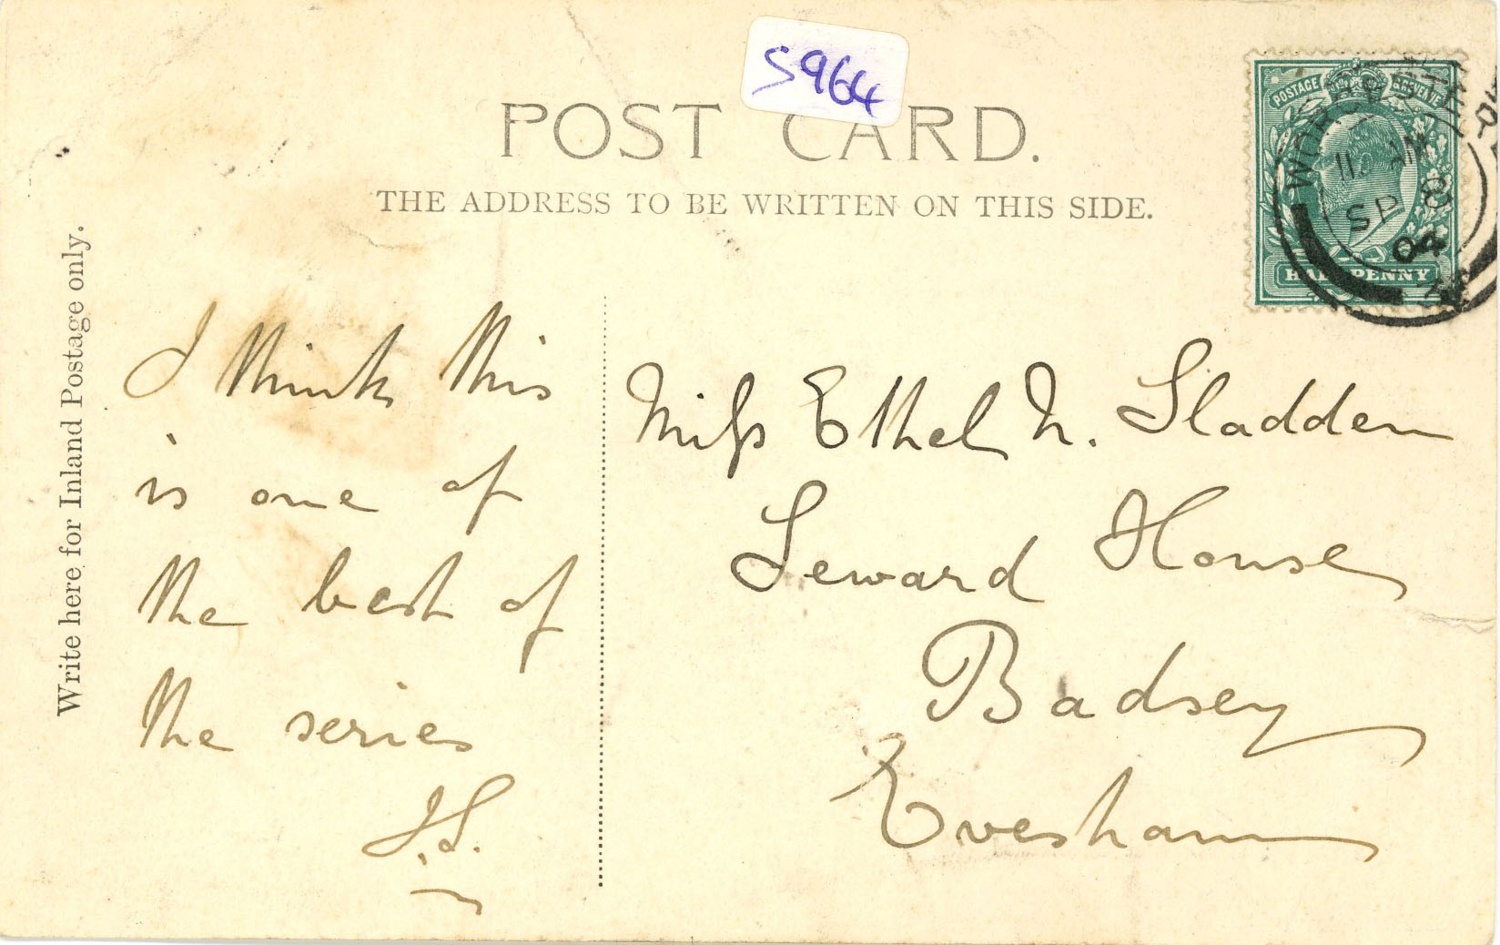 S964
POST CARD.
THE ADDRESS TO BE WRITTEN ON THIS SIDE.
Write here for Inland Postage only.
POSTAGE REVENUE
HALFPENNY
WORCESTER
11 AM
SP 8
04
I think this
is one of
the best of
the series
J.S.
Miss Ethel N. Sladden
Seward House
Badsey
Evesham